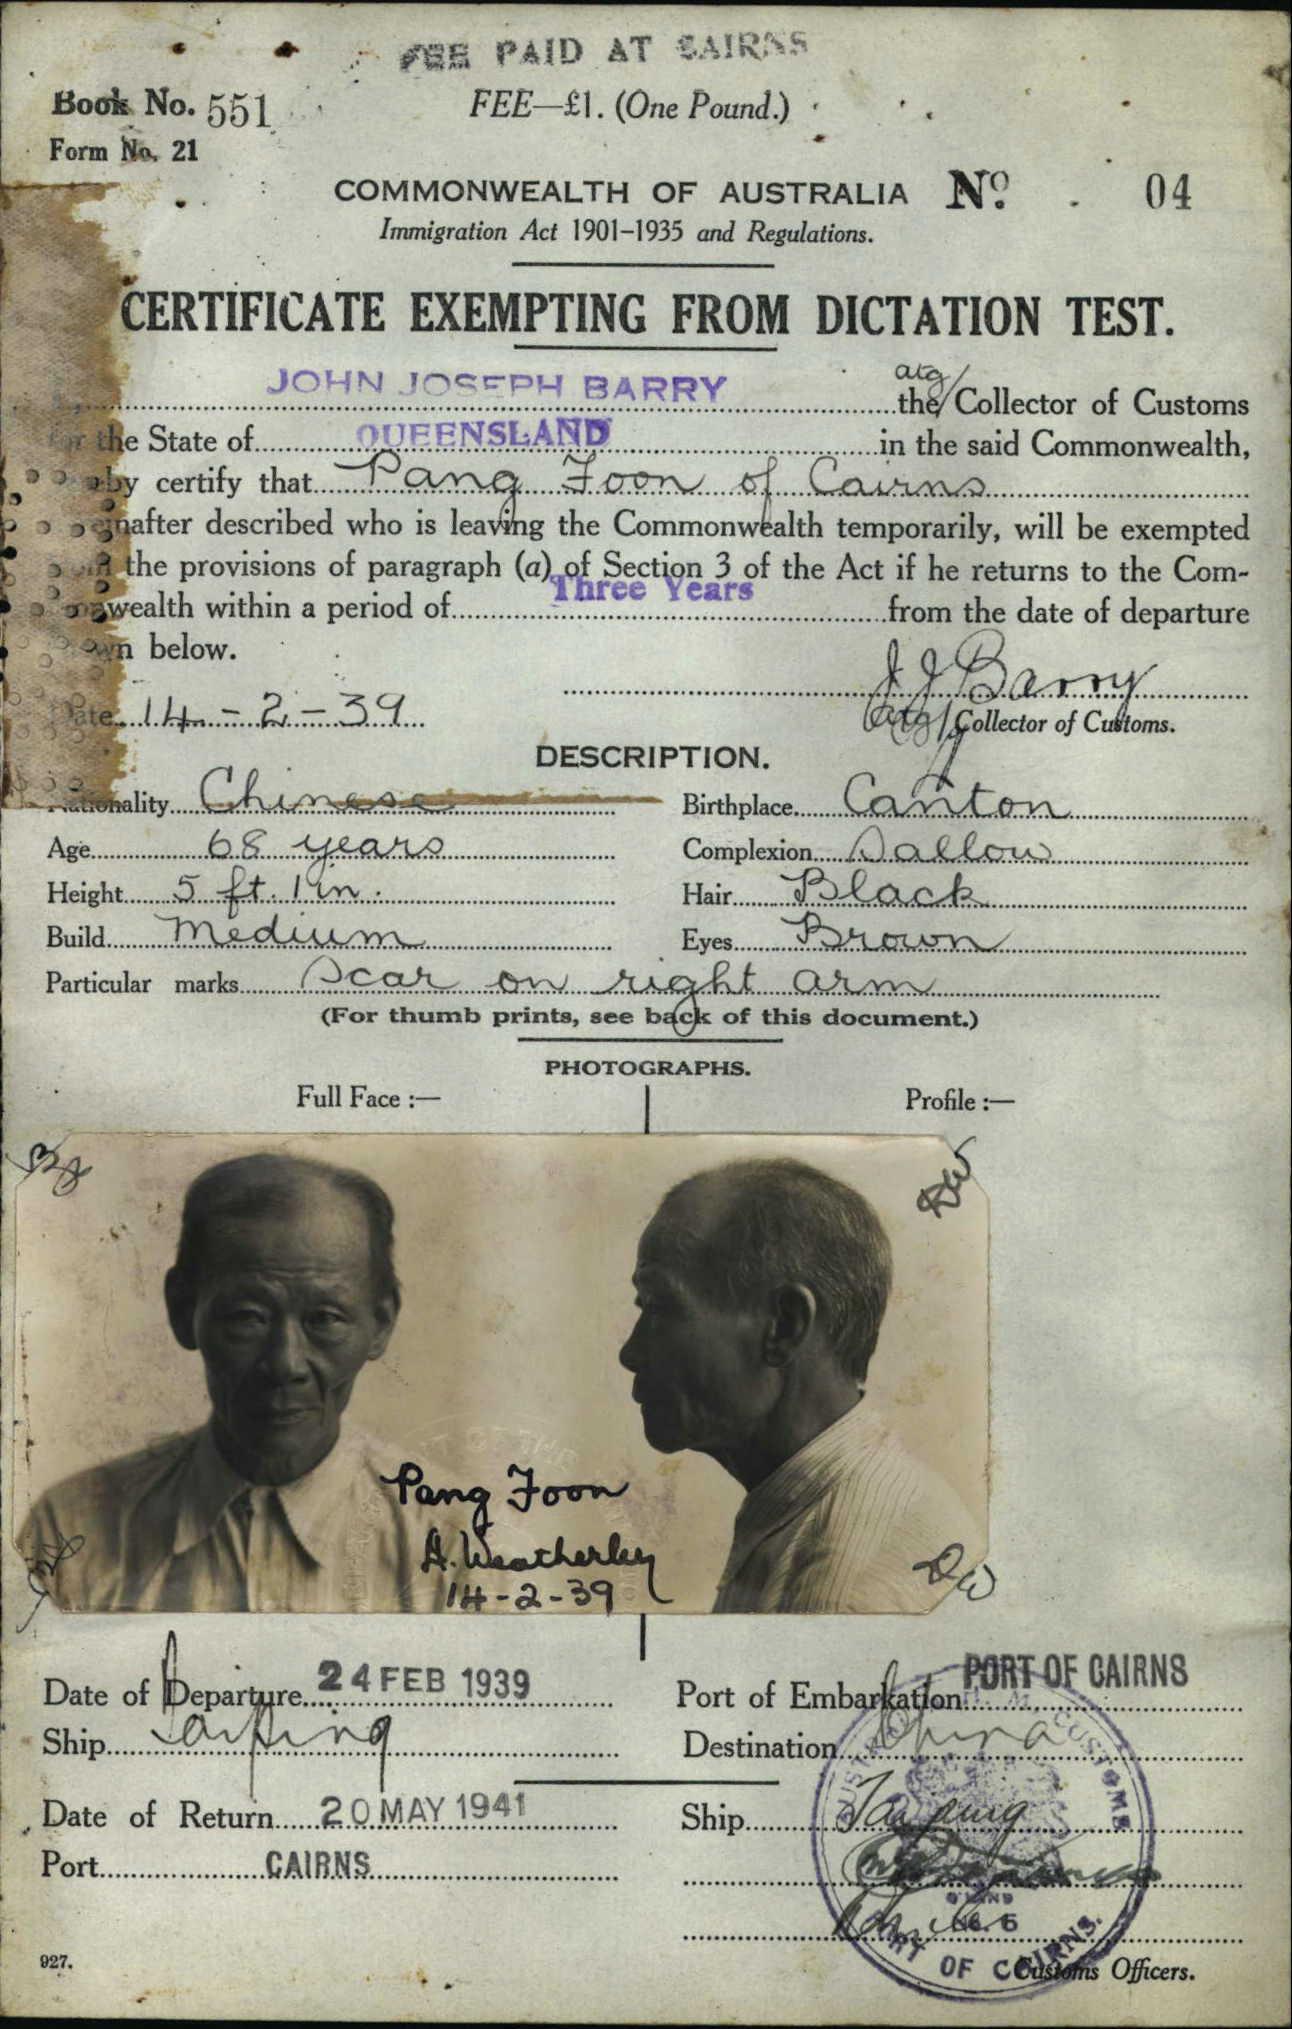 FEE PAID AT CAIRNS
Book No. 551
FEE—£1. (One Pound.)
Form No. 21
COMMONWEALTH OF AUSTRALIA No. 04
Immigration Act 1901–1935 and Regulations.
CERTIFICATE EXEMPTING FROM DICTATION TEST.
JOHN JOSEPH BARRY atg/ the Collector of Customs
for the State of QUEENSLAND in the said Commonwealth,
by certify that Pang Foon of Cairns
inafter described who is leaving the Commonwealth temporarily, will be exempted
the provisions of paragraph (a) of Section 3 of the Act if he returns to the Com-
wealth within a period of Three Years from the date of departure
wn below.
J J Barry
Date 14-2-39
atg/ Collector of Customs.
DESCRIPTION.
Nationality Chinese Birthplace Canton
Age 68 years Complexion Sallow
Height 5 ft. 1 in. Hair Black
Build Medium Eyes Brown
Particular marks Scar on right arm
(For thumb prints, see back of this document.)
PHOTOGRAPHS.
Full Face :— Profile :—
DW
Pang Foon
A. Weatherley
14-2-39
DW
Date of Departure 24 FEB 1939 Port of Embarkation PORT OF CAIRNS
Ship Taiping Destination China
Date of Return 20 MAY 1941 Ship Taiping
Port CAIRNS
CUSTOMS
Q'LAND
No. 5
PORT OF CAIRNS.
927.
Customs Officers.